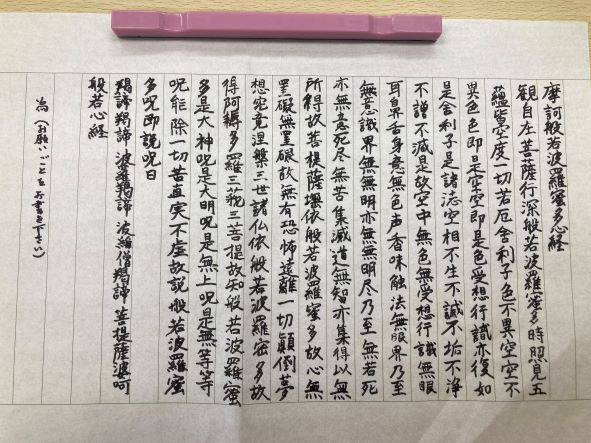 摩訶般若波羅蜜多心経
観自在菩薩行深般若波羅蜜多時照見五
蘊皆空度一切若厄舎利子色不異空空不
異色色即是空空即是色受想行識亦復如
是舎利子是諸法空相不生不滅不垢不浄
不譄不減是故空中無色無受想行識無眼
耳鼻舌身意無色声香味触法無眼界乃至
無意識界無無明亦無無明尽乃至無若死
亦無意死尽無苦集滅道無智亦集得以無
所得故菩提薩埵依般若波羅蜜多故心無
罣礙無罣礙故無有恐怖遠離一切顛倒夢
想究竟涅槃三世諸仏依般若波羅蜜多故
得阿耨多羅三藐三菩提故知般若波羅蜜
多是大神呪是大明呪是無上呪是無等等
呪能除一切苦真実不虚故説般若波羅蜜
多呪即説呪曰
羯諦羯諦 波羅羯諦 波羅僧羯諦 菩提薩婆呵
般若心経
為(お願いごとをお書き下さい)